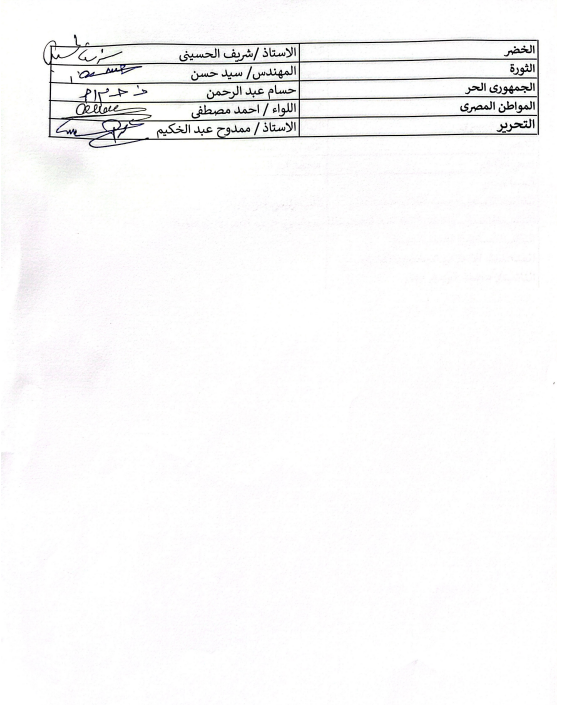 الخضر الاستاذ /شريف الحسينى
الثورة المهندس/ سيد حسن
الجمهورى الحر حسام عبد الرحمن
المواطن المصرى اللواء / احمد مصطفى
التحرير الاستاذ / ممدوح عبد الخكيم